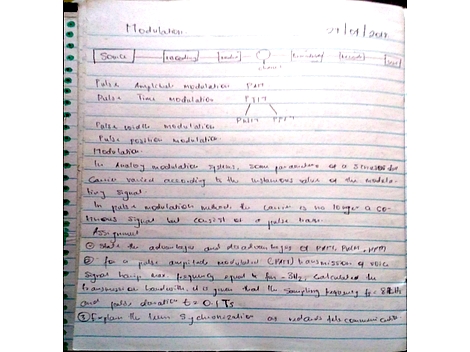 Modulation. 27/01/2017
Source encoding channel
Pulse Amplitude modulation PAM
Pulse Time modulation PTM
PWM PPM
Pulse width modulation
Pulse position modulation.
Modulation.
In Analog modulation systems, some parameters of a
Carrier varied according to the value of the modula-
ting signal.
In pulse modulation method the carrier is no longer a co-
tinuous signal but consist of a pulse train.
Assignment
① State the advantages and disadvantages of PAM, PWM, PPM
② for a pulse amplitude modulated (PAM) transmission of voice
signal having max frequency equal to fm = 3Hz, calculated the
transmission bandwidth it is given that the sampling frequency fs
and pulse duration t = 0.1 Ts
③ Explain the term Synchronization as telecommunication